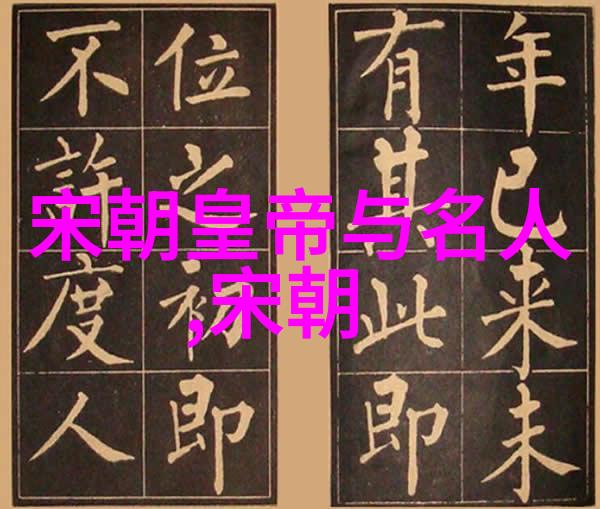 宋朝皇帝与名人
,宋朝
年已来未
有其此即
位之初即
不許度人